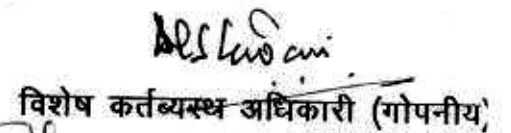 विशेष कर्तव्यस्थ अधिकारी (गोपनीय)